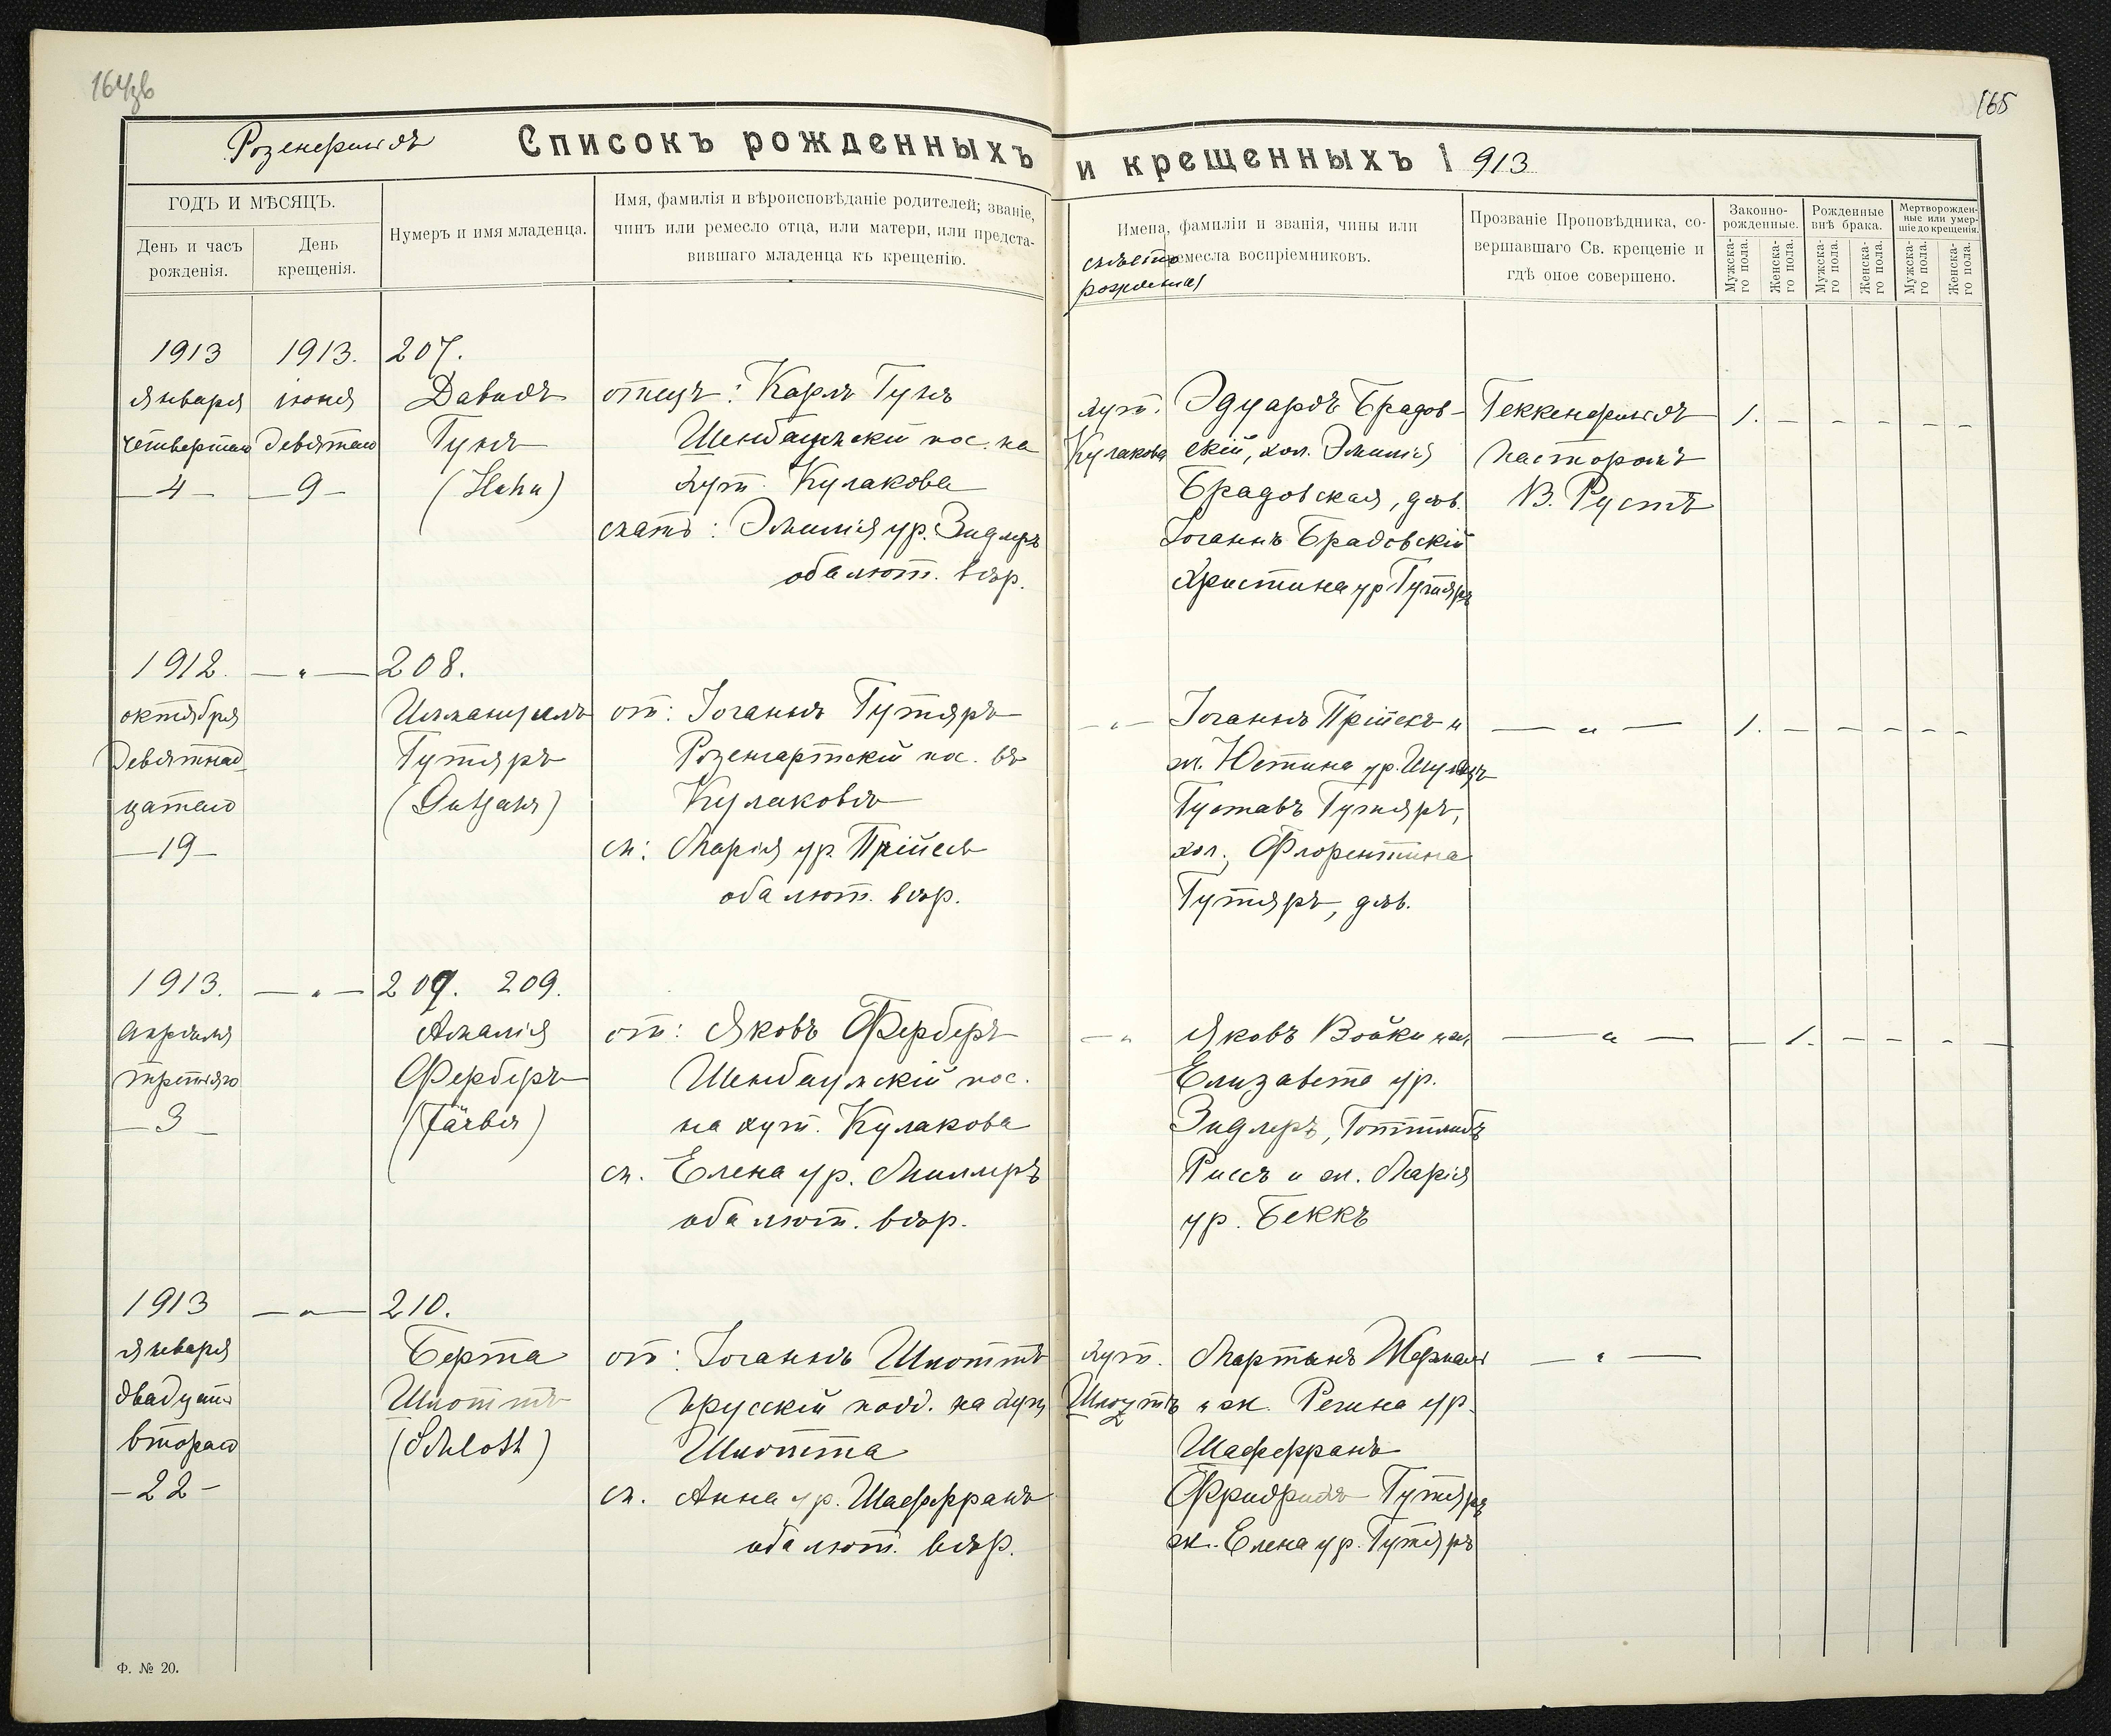 164об
165
Розенфельдъ Списокъ рожденныхъ и крещенныхъ 1913
ГОДЪ И МѢСЯЦЪ.
День и часъ рожденія.
День крещенія.
Нумеръ и имя младенца.
Имя, фамилія и вѣроисповѣданіе родителей; званіе,
чинъ или ремесло отца, или матери, или предста-
вившаго младенца къ крещенію.
мѣсто
рожденія
Имена, фамиліи и званія, чины или
ремесла воспріемниковъ.
Прозваніе Проповѣдника, со-
вершавшаго Св. крещеніе и
гдѣ оное совершено.
Законно-
рожденные.
Рожденные
внѣ брака.
Мертворожден-
ные или умер-
шіе до крещенія.
Мужска-
го пола.
Женска-
го пола.
Мужска-
го пола.
Женска-
го пола.
Мужска-
го пола.
Женска-
го пола.
1913
января
четвертаго
— 4 —
1913.
іюня
девятаго
— 9 —
207.
Давидъ
Гунъ
(Huhn)
отецъ: Карлъ Гунъ
Шенбаумскій пос. на
хут. Кулакова
мать: Эмилія ур. Зидлеръ
оба лют. вѣр.
хут.
Кулакова
Эдуардъ Брадов-
скій, хол. Эмилія
Брадовская, дѣв.
Іоганнъ Брадовскій
Христина ур. Гутяръ
пасторомъ
В. Рустъ
1. — — — — —
1912.
октября
девятнад-
цатаго
— 19 —
— „ —
208.
Иммануилъ
Гутяръ
(Gutjahr)
от: Іоганнъ Гутяръ
Розенгартскій пос. въ
Кулаковѣ
м: Марія ур. Прійсъ
оба лют. вѣр.
— „ —
Іоганнъ Прійсъ и
ж. Юстина ур.
Густавъ Гутяръ,
хол., Флорентина
Гутяръ, дѣв.
— „ —
1. — — — — —
1913.
апрѣля
третьяго
— 3 —
— „ —
209. 209.
Амалія
Ферберъ
(Färber)
от: Яковъ Ферберъ
Шенбаумскій пос.
на хут. Кулакова
м. Елена ур. Миллеръ
оба лют. вѣр.
— „
Яковъ Войки и ж.
Елизавета ур.
Зидлеръ, Готтлибъ
Риссъ и ж. Марія
ур. Беккъ
— „ —
— 1. — — — —
1913
января
двадцать
второго
— 22 —
— „ —
210.
Берта
Шлоттъ
(Schlott)
от: Іоганнъ Шлоттъ
прусскій подд. на хут.
Шлотта
м. Анна ур. Шафранъ
оба лют. вѣр.
хут.
Мартинъ
и ж. Регина ур.
Шафранъ
Фридрихъ Гутяръ
ж. Елена ур. Гутяръ
— „ —
Ф. № 20.